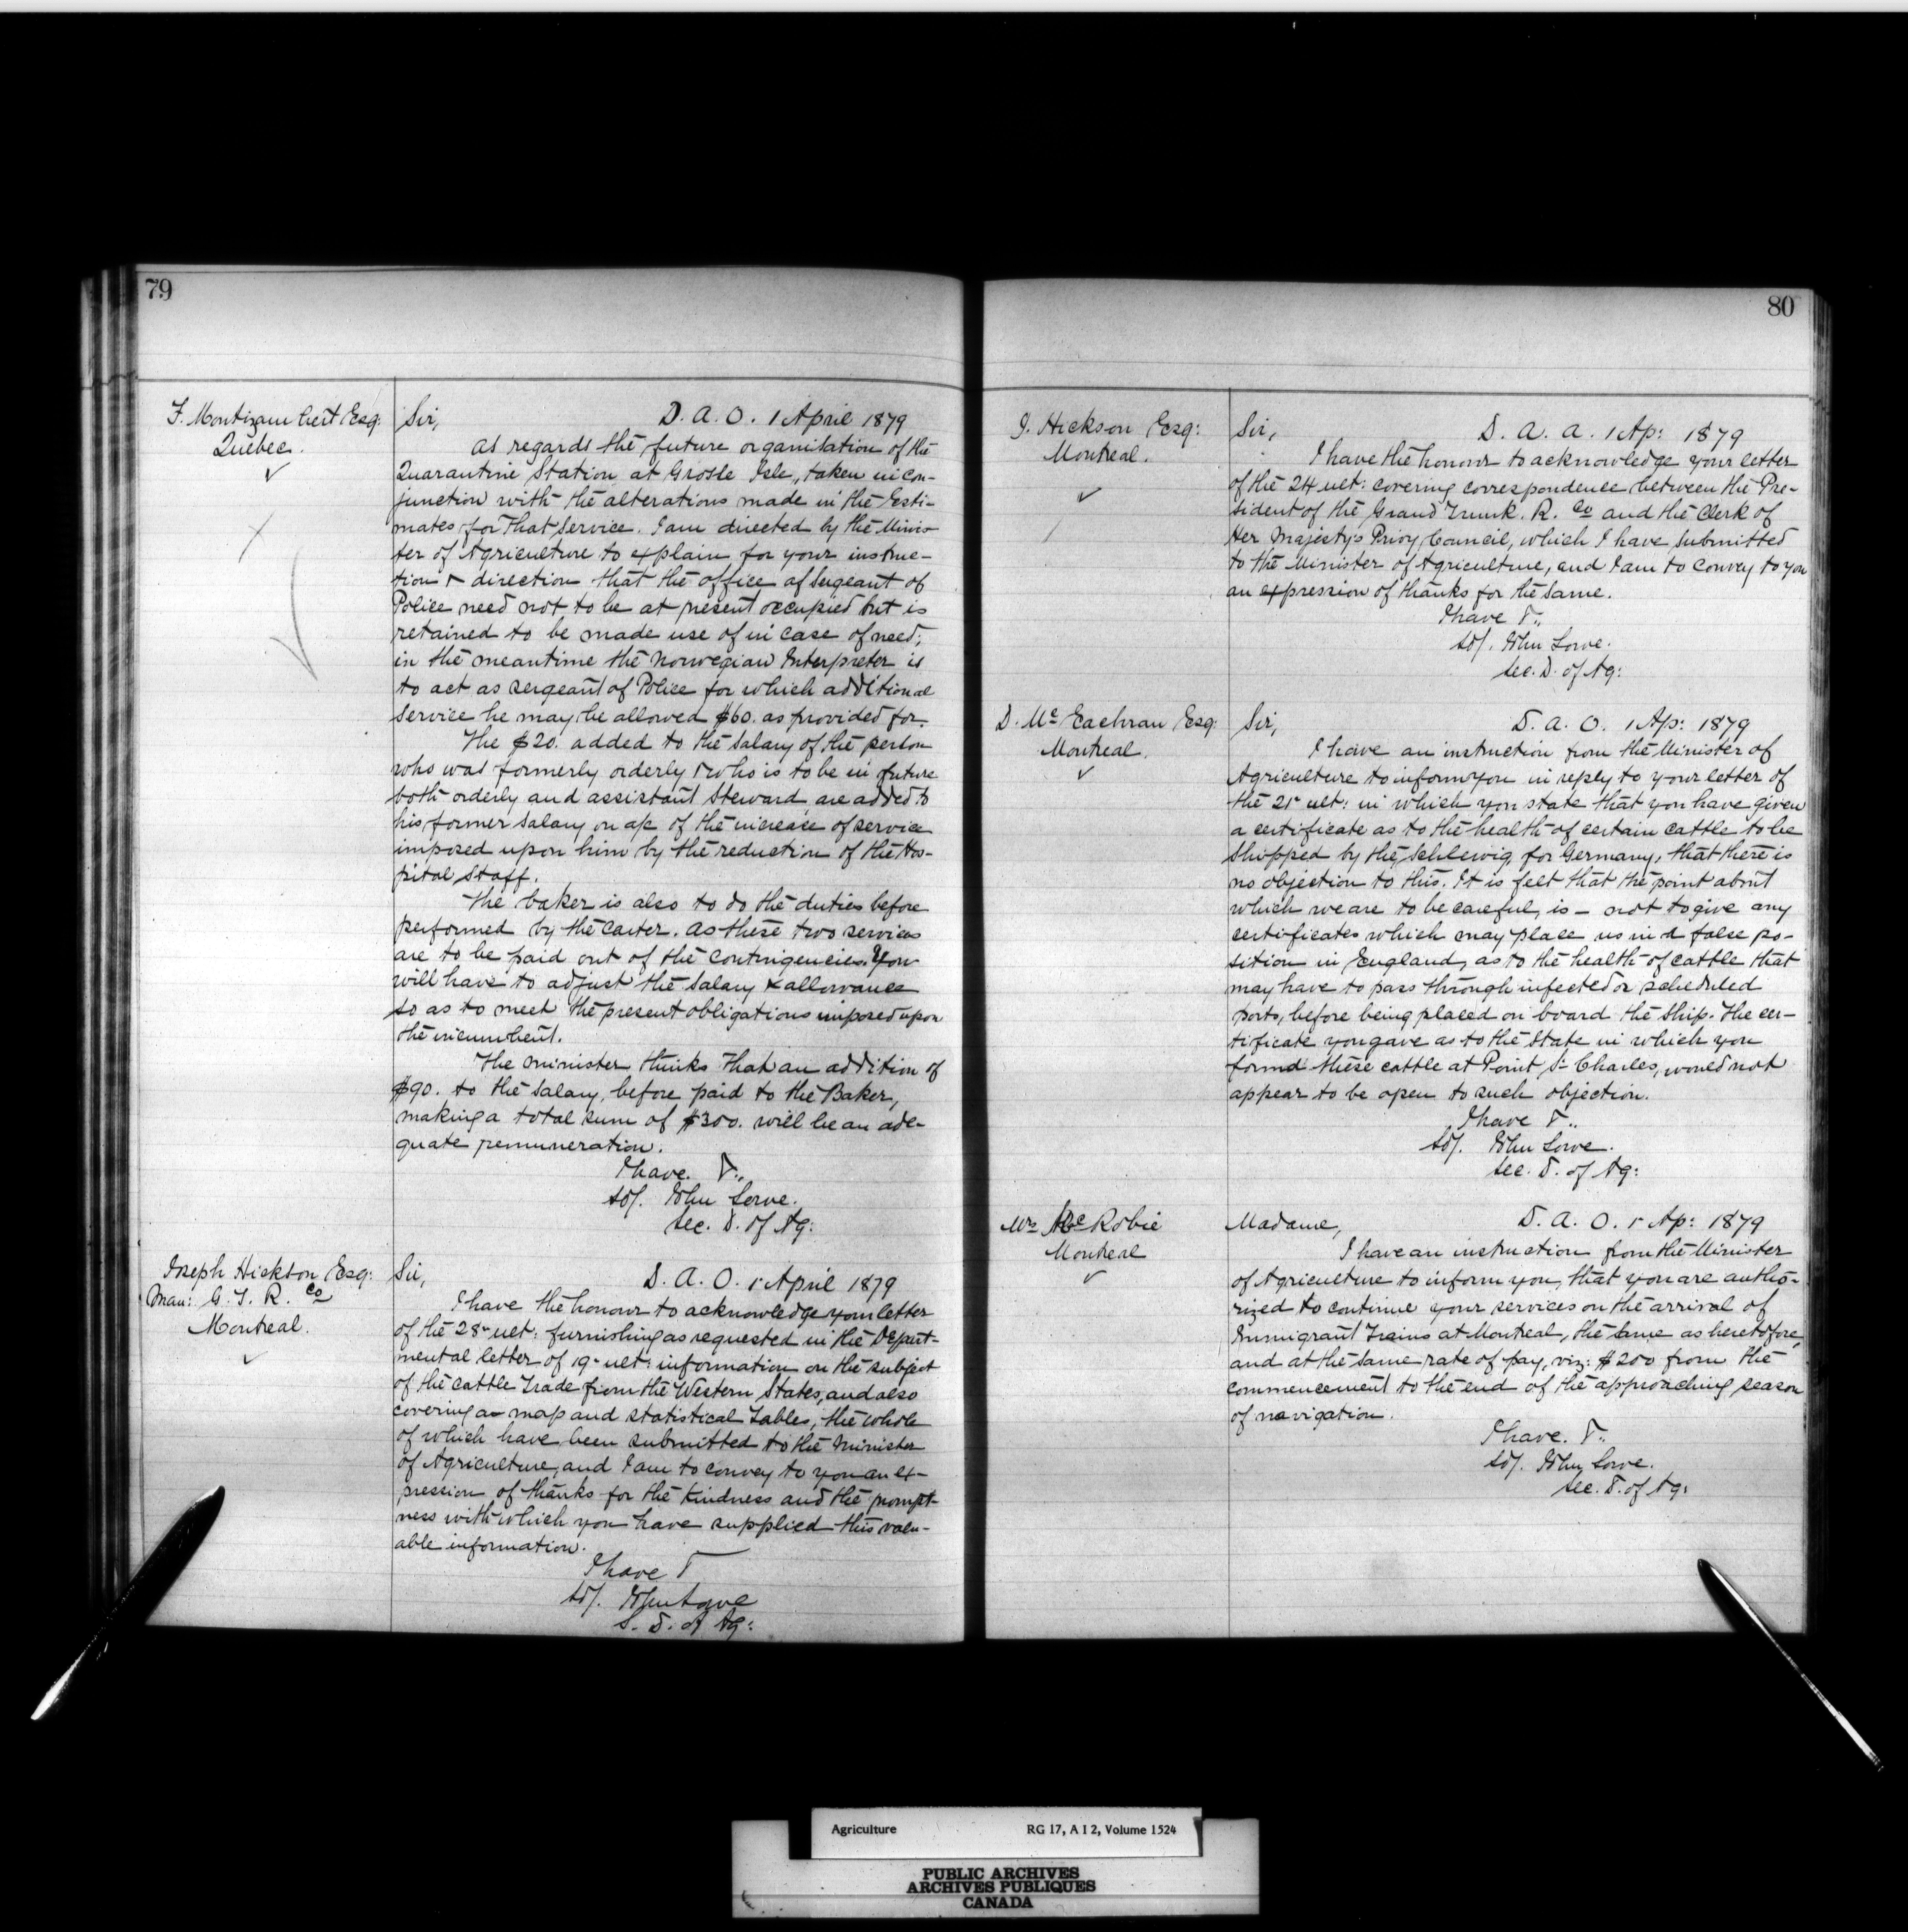 79
F. Montizambert Esq:
Quebec.
Sir,
D. A. O. 1 April 1879
As regards the future organisation of the
Quarantine Station at Grosse Isle, taken in con-
junction with the alterations made in the Esti-
mates for that service. I am directed by the Minis-
ter of Agriculture to explain for your instruc-
tion & direction that the office of Sergeant of
Police need not to be at present occupied but is
retained to be made use of in case of need;
in the meantime the Norwegian Interpreter is
to act as sergeant of Police for which additional
service he may be allowed $60. as provided for.
The $20. added to the salary of the person
who was formerly orderly & who is to be in future
both orderly and assistant steward are added to
his former salary on a/c of the increase of service
imposed upon him by the reduction of the Hos-
pital Staff.
The baker is also to do the duties before
performed by the Carter. As these two services
are to be paid out of the Contingencies. You
will have to adjust the salary & allowance
so as to meet the present obligations imposed upon
the incumbent.
The minister thinks that an addition of
$90. to the salary before paid to the Baker,
making a total sum of $300. will be an ade-
quate remuneration.
I have. &..
sd/. John Lowe.
Sec. D. of Ag:
Joseph Hickson Esq:
Man: G. T. R. Co
Montreal.
Sir,
D. A. O. 1 April 1879
I have the honour to acknowledge your letter
of the 28 ult: furnishing as requested in the Depart-
mental letter of 19 ult: information on the subject
of the cattle Trade from the Western States, and also
covering a map and statistical Tables, the whole
of which have been submitted to the Minister
of Agriculture, and I am to convey to you an ex-
pression of thanks for the kindness and the prompt-
ness with which you have supplied this valu-
able information.
I have &
sd/. John Lowe
S. D. of Ag:
80
J. Hickson Esq:
Montreal.
Sir,
D. A. A. 1 Ap: 1879
I have the honour to acknowledge your letter
of the 24 ult: covering correspondence between the Pre-
sident of the Grand Trunk. R. Co and the Clerk of
Her Majesty's Privy Council, which I have submitted
to the Minister of Agriculture, and I am to convey to you
an expression of thanks for the same.
I have &..
sd/. John Lowe.
Sec. D. of Ag:
D. Mc Eachran Esq:
Montreal.
Sir,
D. A. O. 1 Ap: 1879
I have an instruction from the Minister of
Agriculture to inform you in reply to your letter of
the 21 ult: in which you state that you have given
a certificate as to the health of certain cattle to be
shipped by the Schleswig for Germany, that there is
no objection to this. It is felt that the point about
which we are to be careful, is - not to give any
certificates which may place us in a false po-
sition in England, as to the health of cattle that
may have to pass through infected or scheduled
ports, before being placed on board the ship. The cer-
tificate you gave as to the State in which you
found these cattle at Point St Charles, would not
appear to be open to such objection.
I have &..
sd/. John Lowe.
Sec. D. of Ag:
Mrs McRobie
Montreal
Madame,
D. A. O. 1 Ap: 1879
I have an instruction from the Minister
of Agriculture to inform you, that you are autho-
rized to continue your services on the arrival of
Immigrant Trains at Montreal, the same as heretofore,
and at the same rate of pay, viz: $200 from the
commencement to the end of the approaching season
of navigation.
I have. &..
sd/. John Lowe.
Sec. D. of Ag:
Agriculture RG 17, A I 2, Volume 1524
PUBLIC ARCHIVES
ARCHIVES PUBLIQUES
CANADA